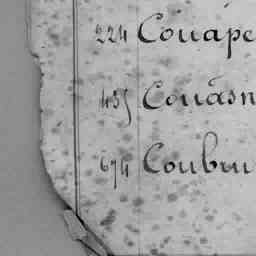 224 Couape
435 Couasn
674 Coubru